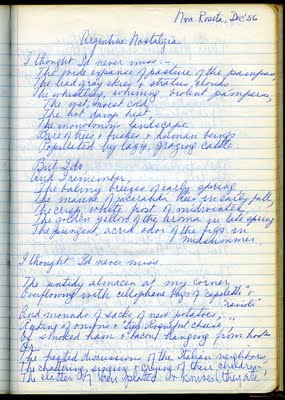 Nva Roseta, Dec '56
Argentine Nostalgia
I thought I'd never miss:-
The wide expanse of pasture of the pampas,
The lead gray skies & stratus clouds
The whistling, whining violent pamperos,
The wet, moist cold
The hot damp heat,
The monotonous landscape
Bare of trees & bushes & human beings
Populated by lazy, grazing cattle
But I do.
And I remember,
The balmy breezes of early spring
The mauve of jacaranda trees in early fall,
The crisp, white frost of midwinter
The golden yellow of the aroma in late spring
The pungent, acrid odor of the figs in
midsummer
I thought I'd never miss
The untidy almacen at my corner
Overflowing with cellophane bags of capeletti &
ravioli
And mounds of sacks of new potatoes,
Reeking of onions & cheese,
Of smoked ham & bacon hanging from hooks
Or
The heated discussions of the Italian neighbours,
The chattering, singing & crying of their children,
The clatter of plates & knives